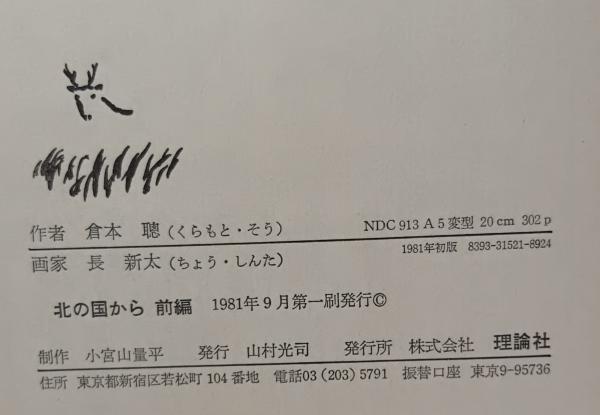 作者 倉本 聰(くらもと・そう) NDC 913 A5変型 20cm 302p
画家 長 新太(ちょう・しんた) 1981年初版 8393-31521-8924
北の国から 前編 1981年9月第一刷発行©
制作 小宮山量平 発行 山村光司 発行所 株式会社 理論社
住所 東京都新宿区若松町104番地 電話03(203)5791 振替口座 東京9-95736